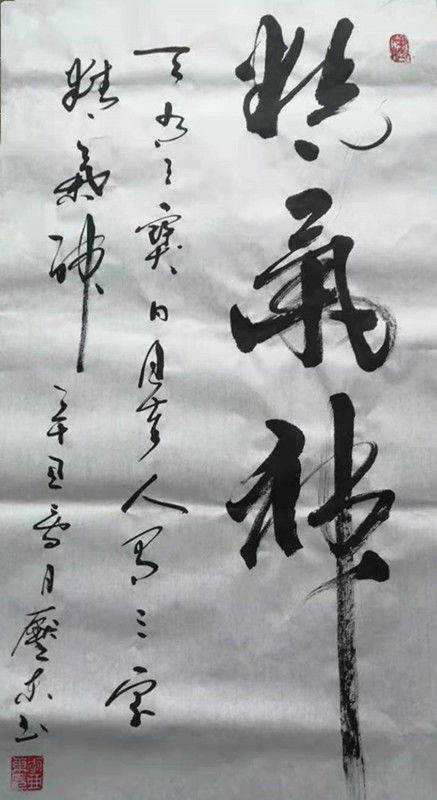 精氣神
天有三寶日月星人有三寶
精氣神
辛丑月书